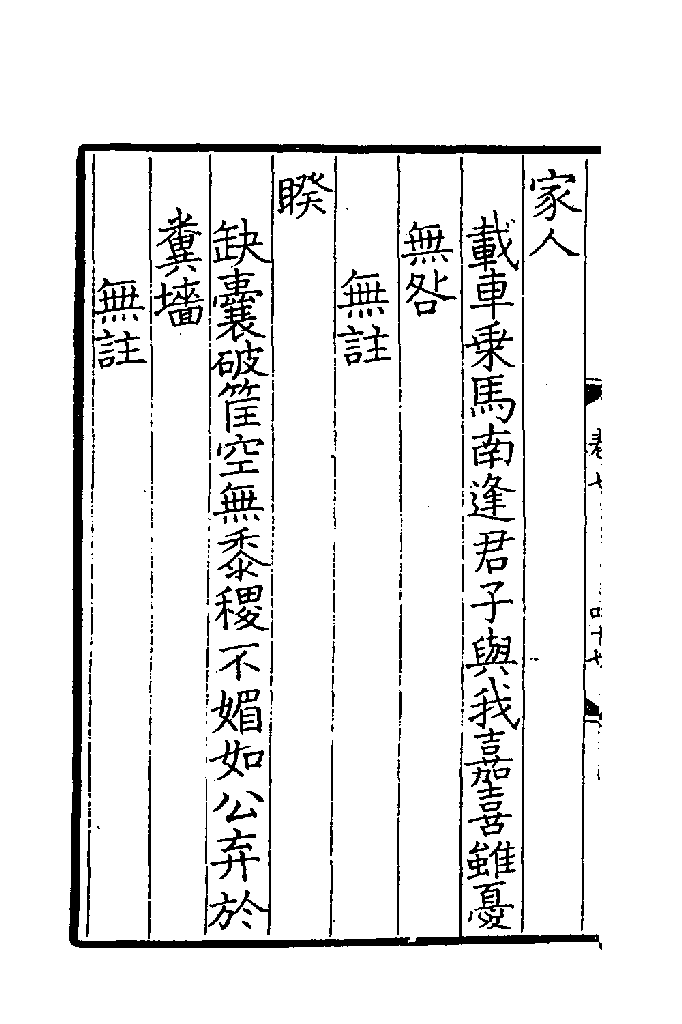 家人
載車乗馬南逢君子與我嘉喜雖憂
無咎
無註
睽
缺囊破筐空無黍稷不媚如公弃於
糞墻
無註